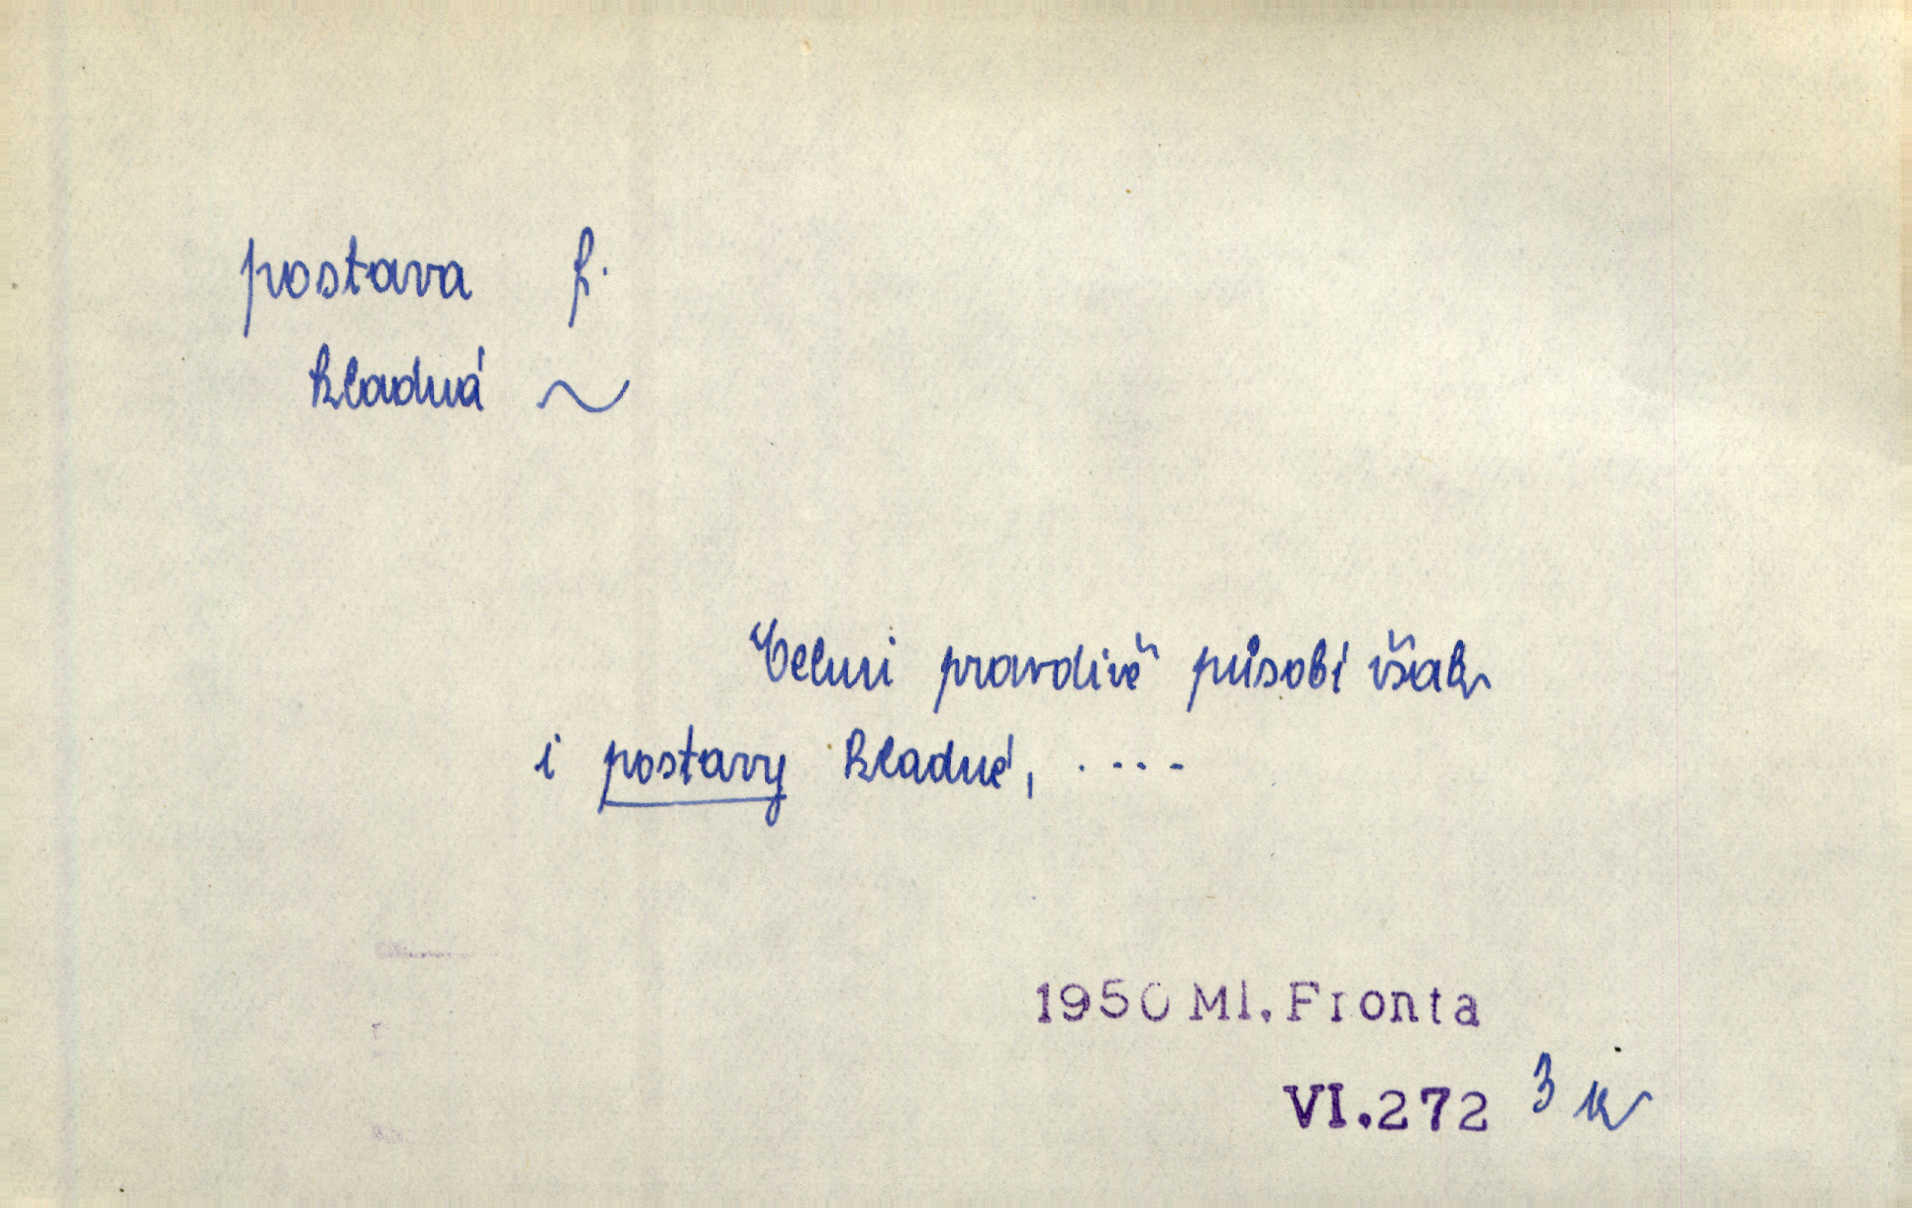 postava f.
kladná ~
Velmi pravdivě působí však
i postavy kladné, ....
1950 Ml. Fronta
VI.272 3